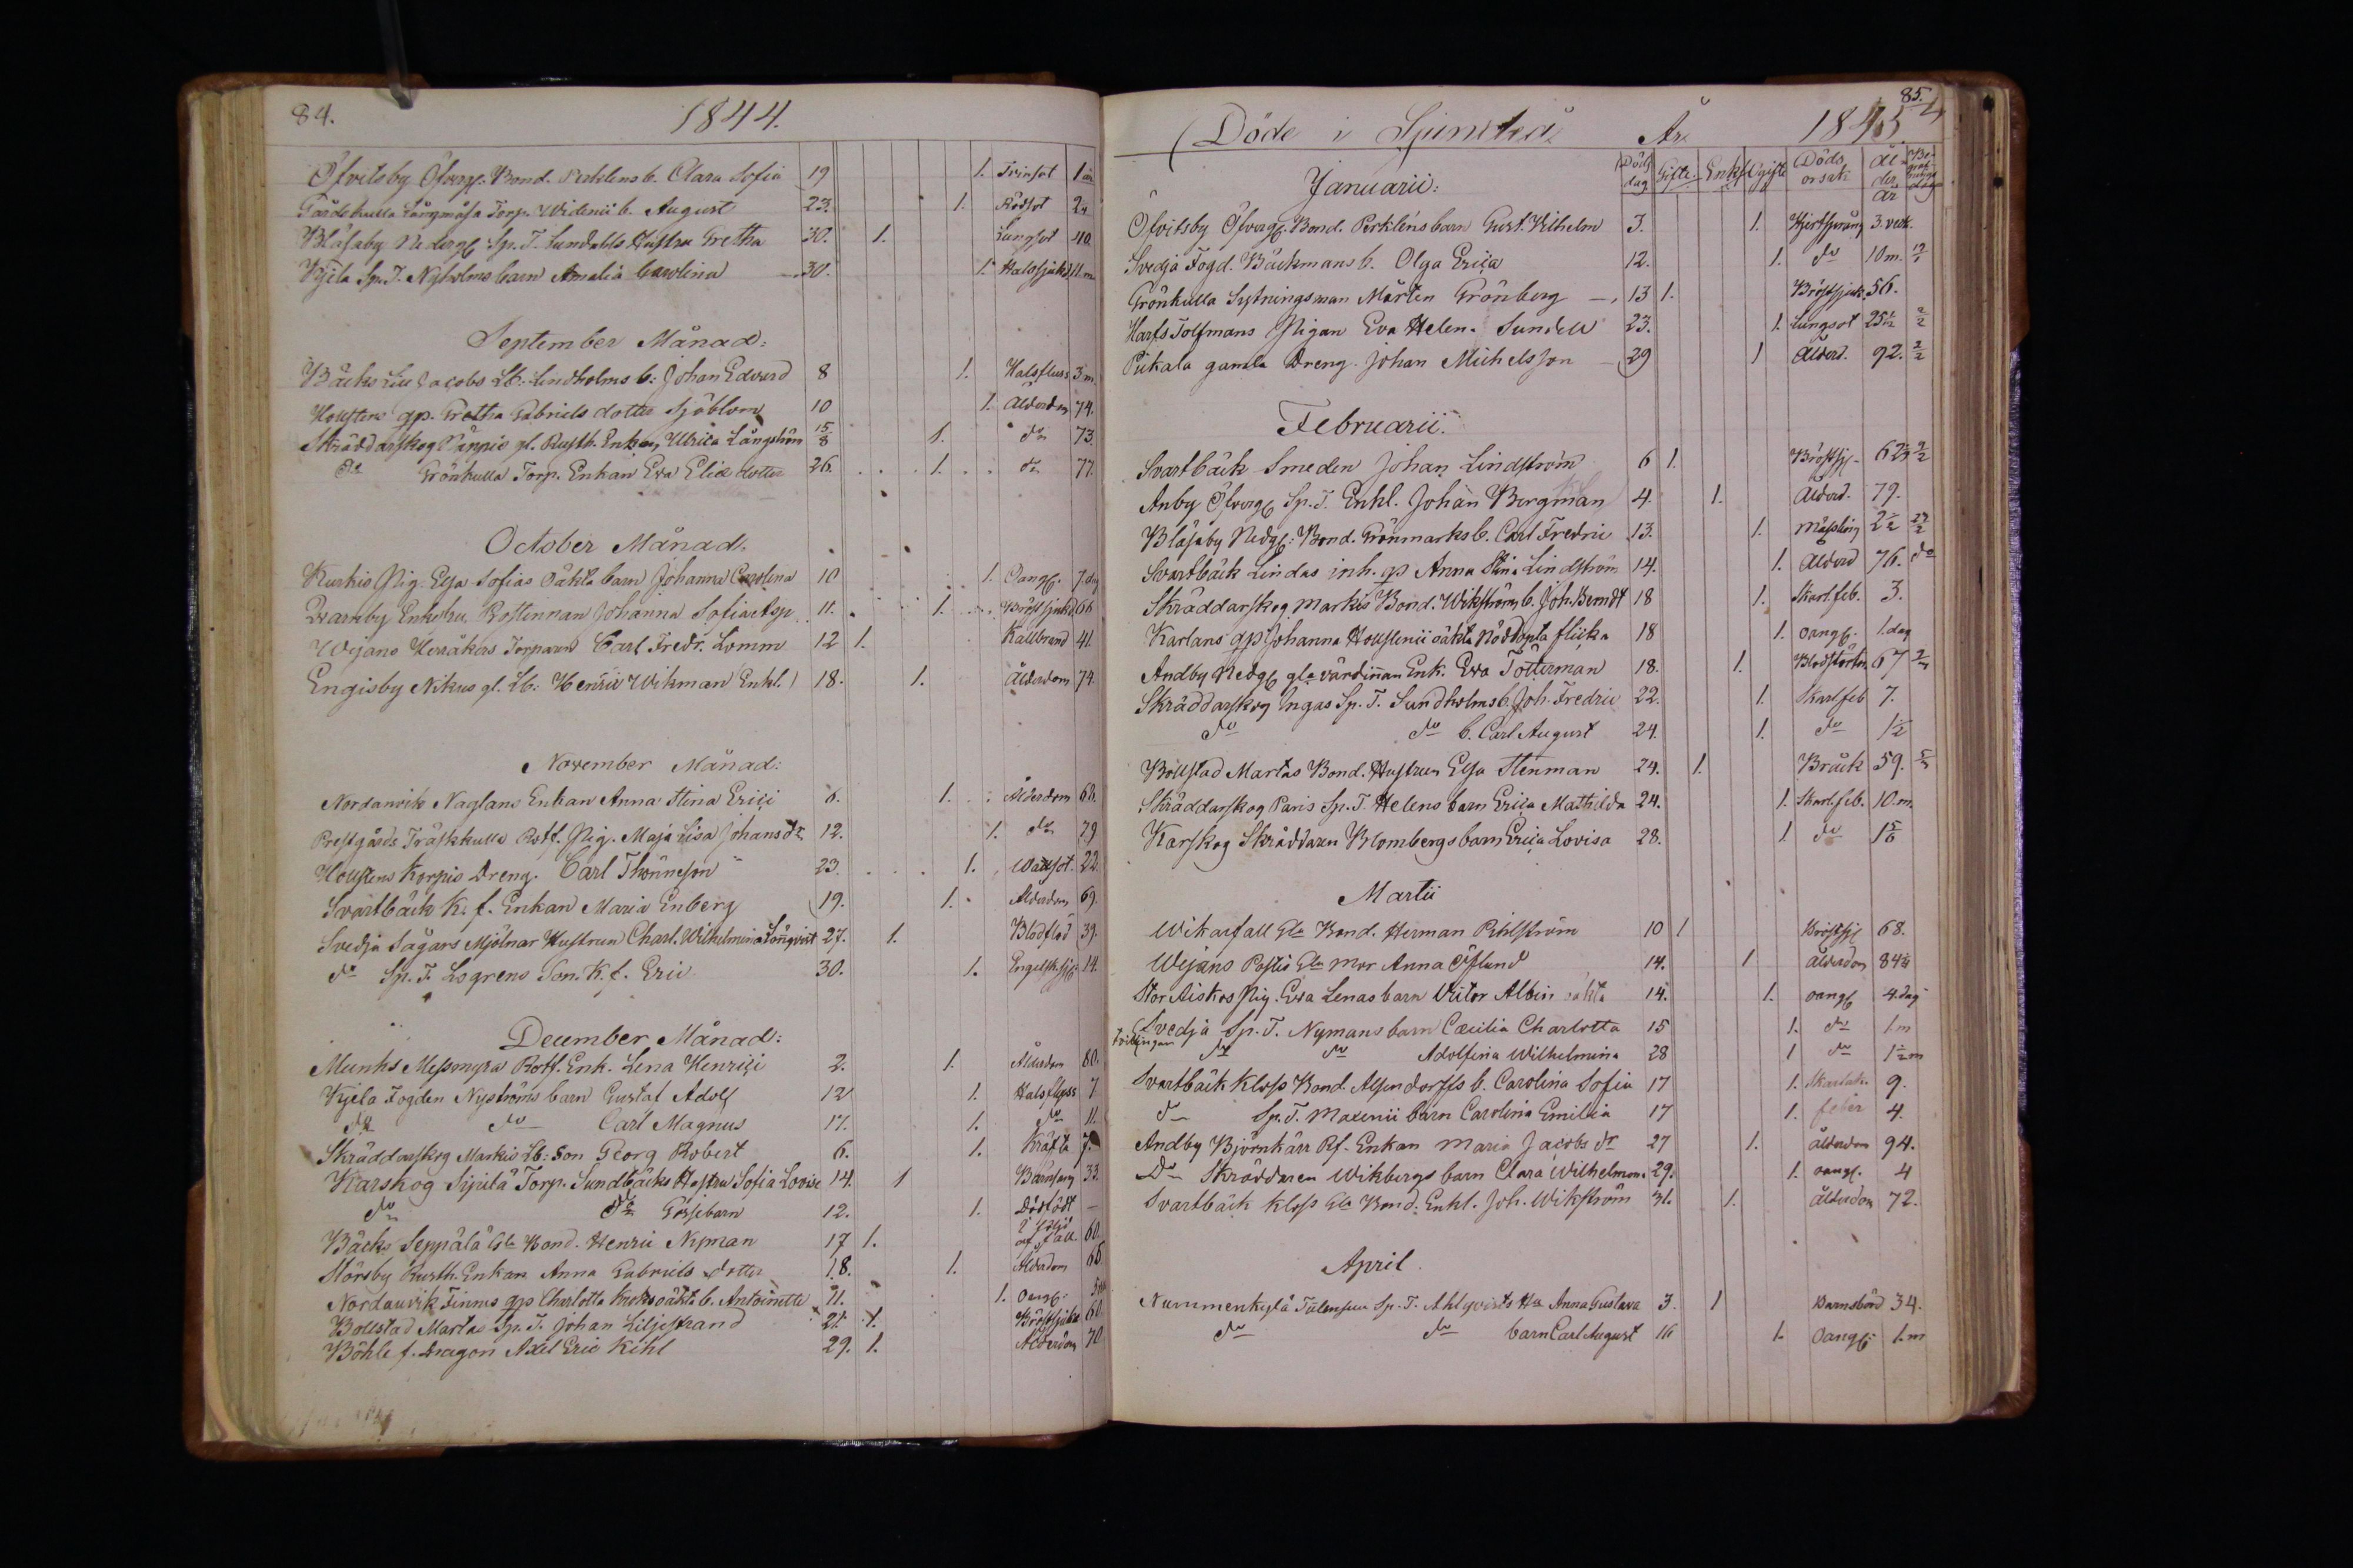 84. 1844.
Öfvitsby Öfverg. Bond. Perklens b. Clara Sofia 19 1. Tvinsot 1 år
Gårdskulla Långmåsa Torp. Widenii b. August 23. 1. Rödsot 2
Blåsaby Nederg. Sp. T. Sundahls Hustru Gretha 30. 1. Lungsot 40.
Kyrla Sp. T. Nyholms barn Amalia Carolina 30. 1. Halssjukd. 11. m
September Månad:
Bäcks Jacobs Lb: Lindholms b: Johan Edvard 8 1. Halsfluss 3 m.
Houstens qp. Gretha Gabriels dotter Sjöblom 10 1. Ålderdom 74.
Skräddarskog gl. Rusth. Enkan Ulrica Långström 15/8 1. do 73.
do Grönkulla Torp. Enkan Eva Elie dotter 26. 1. do 77.
October Månad.
Kurkis Pig. Elsa Sofias Oäkta barn Johanna Carolina 10 1. Oangf. 7. dag
Qvarnby Enkefru Johanna Sofia Asp 11. 1. Bröstsjukd. 66
Wejans Torparen Carl Fredr. Lomm 12 1. Kallbrand 41.
Engisby Nikus gl. Lb: Henric Wikman (Enkl.) 18. 1. Ålderdom 74.
November Månad:
Nordanvik Naglans Enkan Anna Stina Erici 6. 1. Ålderdom 68.
Prestgårds Träskkulla Rotf. Pig. Maja Lisa Johans dr 12. 1. do 79
Houstens Korpis Dreng. Carl Thönneson 23. 1. Wattsot. 22.
Svartbäck K. f. Enkan Maria Enberg 19. 1. Ålderdom 69.
Svedja Sågars Mjölnar Hustrun Charl. Wilhelmina Lönqvist 27. 1. Blodflöd 39.
do Sp. T. Logrens Son. K. f. Eric 30. 1. Engelsk. sj. 14.
December Månad:
Munks Messmyra Rotf. Enk. Lena Henrici 2. 1. Ålderdom 80.
Kyrla Fogden Nyströms barn Gustaf Adolf 12 1. Halsflyss 7
do do Carl Magnus 17. 1. do 11.
Skräddarskog Markis Lb: Son Georg Robert 6. 1. Kräfta 7.
Karskog Sipilä Torp. Sundbäcks Hustru Sofia Lovisa 14. 1 Barnsäng 33.
do do Gossebarn 12. 1. Dödfödt —
Bäcks Seppälä Gle Bond. Henric Nyman 17 1. af fall 60.
Störsby Rusth. Enkan Anna Gabriels dotter 18. 1. Ålderdom 65.
Nordanvik Finnas qp Charlotta oäkta b. Antoinette 11. 1. Oangf.
Bollstad Martas Sp. T. Johan Liljestrand 21. 1. Bröstsjukd 60.
Böhle f. Dragon Axel Eric Kihl 29. 1. Ålderdom 70
85.
Döde i Sjundeå År 1845.
Januarii: Döds dag Gifte. Enkl. Ogifte Döds orsak Ålder År Begrafnings dag
Öfvitsby Öfverg. Bond. Perkléns barn Gust. Wilhelm 3. 1. Hjertsprång 3. veck.
Svedja Fogd. Bäckmans b. Olga Erica 12. 1. do 10 m. 19/1
Grönkulla Sytningsman Mårten Grönberg — 13 1. Bröstsjuk. 56.
Harfs Tolfmans Pigan Eva Helen. Sundell 23. 1. Lungsot 25 2/2
Pikala gamla Dreng. Johan Michelsson — 29 1 Ålderd. 92. 2/2
Februarii.
Svartbäck Smeden Johan Lindström 6 1. Bröstsj. 62
Anby Öfverg Sp. T. Enkl. Johan Bergman 4. 1. Ålderd. 79.
Blåsaby Nedg: Bond. Grönmarks b. Carl Fredric 13. 1. Mässling 2 1/2
Svartbäck Lindas inh. qp Anna Stina Lindström 14. 1. Ålderd 76. do
Skräddarskog Markis Bond. Wikströms b. Joh. Berndt 18 1. Skarl. feb. 3.
Karlans qp Johanna Houstenii oäkta nöddöpta flicka 18 1. oangf. 1. dag
Andby Nedg gla värdinnan Enk. Eva Tötterman 18. 1. Blodstörtn. 67
Skräddarskog Ingas Sp. T. Sundholms b. Joh. Fredric 22. 1. Skarl. feb 7.
do do b. Carl August 24. 1. do 1 1/2
Bollstad Martas Bond. Hustrun Elsa Stenman 24. 1. Bråck 59.
Skräddarskog Paris Sp. T. Helens barn Erica Mathilda 24. 1. Skarl. feb. 10. m.
Karskog Skräddaren Blombergs barn Erica Lovisa 28. 1 do 1 5/6
Martii
Wikarfall Gle Bond. Herman Pihlström 10 1 Bröstsj 68.
Wejans Postis Gla Mor Anna Öflund 14. 1 ålderdom 84
Stor Aiskos Pig. Eva Lenas barn Victor Albin oäkta 14. 1. oangf 4. dag
tvillingar Svedja Sp. T. Nymans barn Cæcilia Charlotta 15 1. do 1. m
do do Adolfina Wilhelmina 28 1 do 1 1/2 m
Svartbäck Kloss Bond. Alsendorffs b. Carolina Sofia 17 1. Skarlak. 9.
do Sp. T. Maxenii barn Carolina Emilia 17 1. feber 4.
Andby Björnkärr Rf. Enkan Maria Jacobs dr 27 1. ålderdom 94.
do Skräddaren Wikbergs barn Clara Wilhelmina. 29. 1. oangf. 4
Svartbäck Kloss Gle Bond. Enkl. Joh. Wikström 31. 1. ålderdom 72.
April
Nummenkylä Sp. T. Ahlqvists Hu Anna Gustava 3. 1 Barnsbörd 34.
do do barn Carl August 16 1. Oangf: 1. m